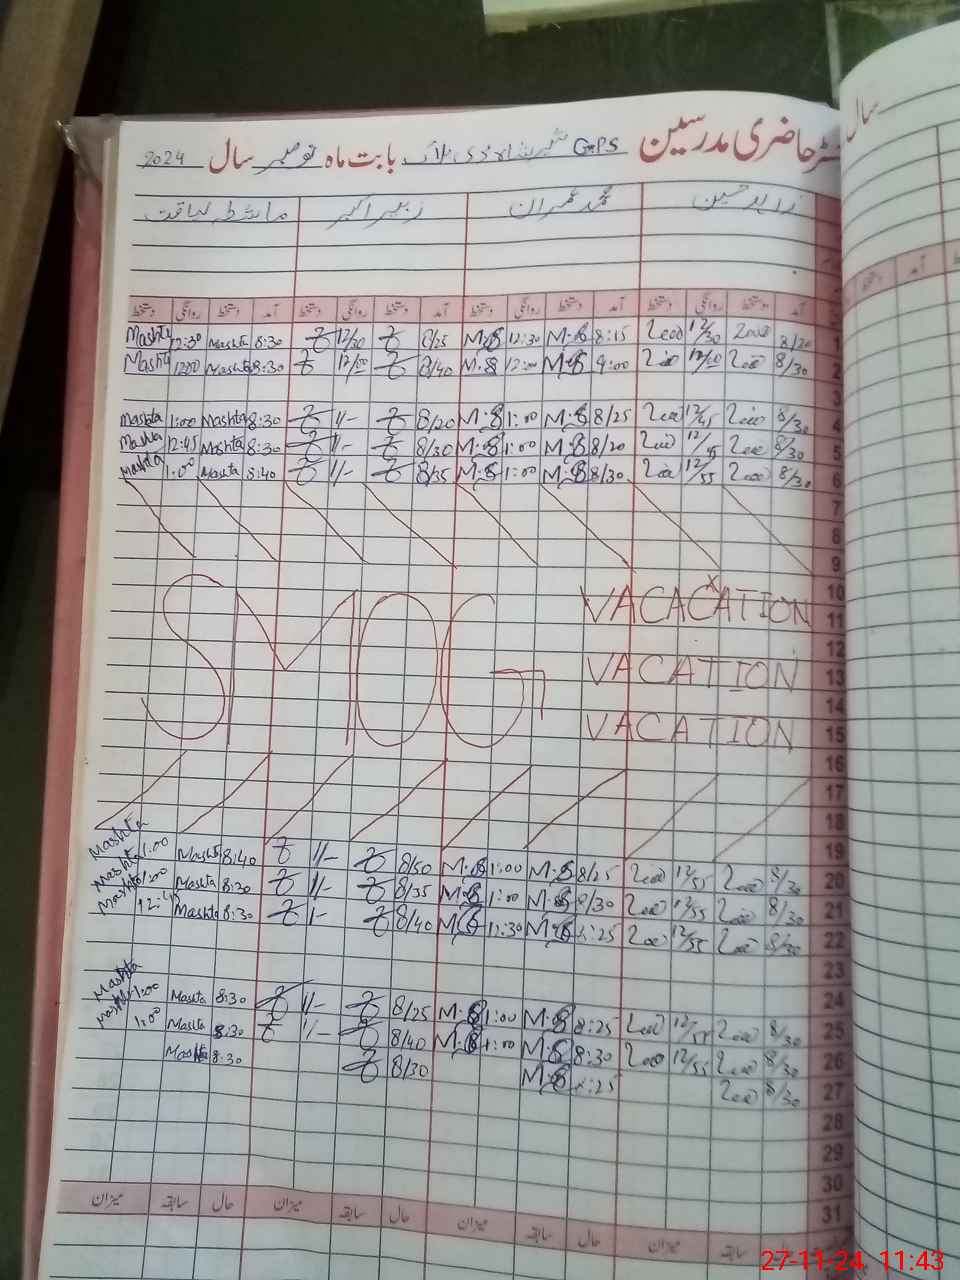 رجسٹر حاضری مدرسین GPS بابت ماہ نومبر سال 2024
زاہد حسین محمد عمران زبیر اکبر ماشطہ لیاقت
آمد دستخط روانگی دستخط آمد دستخط روانگی دستخط آمد دستخط روانگی دستخط آمد دستخط روانگی دستخط
Mashta 12:30 Mashta 8:30 12/30 8/25 M.S 12:30 M.S 8:15 12/30 8/20 1
Mashta 12:00 Mashta 8:30 12/00 8/40 M.S 12:00 M.S 9:00 12/00 8/30 2
3
Mashta 1:00 Mashta 8:30 1/- 8/20 M.S 1:00 M.S 8/25 12/45 8/30 4
Mashta 12:45 Mashta 8:30 1/- 8/30 M.S 1:00 M.S 8/20 12/45 8/30 5
Mashta 1:00 Mashta 8:40 1/- 8/35 M.S 1:00 M.S 8/30 12/55 8/30 6
7
8
9
10
SMOG VACACATION 11
12
VACATION 13
14
VACATION 15
16
17
18
19
Mashta 1:00 Mashta 8:40 1/- 8/50 M.S 1:00 M.S 8/25 12/55 8/30 20
Mashta 1:00 Mashta 8:20 1/- 8/35 M.S 1:00 M.S 8/30 12/55 8/30 21
Mashta 12:45 Mashta 8:30 1/- 8/40 M.S 12:30 M.S 8:25 12/55 8/30 22
23
24
Mashta 1:00 Mashta 8:30 1/- 8/25 M.S 1:00 M.S 8:25 12/55 8/30 25
Mashta 1:00 Mashta 8:30 1/- 8/40 M.S 1:00 M.S 8:30 12/55 8/30 26
Mashta 8:30 8/30 M.S 8:25 8/30 27
28
29
30
31
حال سابقہ میزان حال سابقہ میزان حال سابقہ میزان حال سابقہ میزان
سال
آمد
27-11-24 11:43